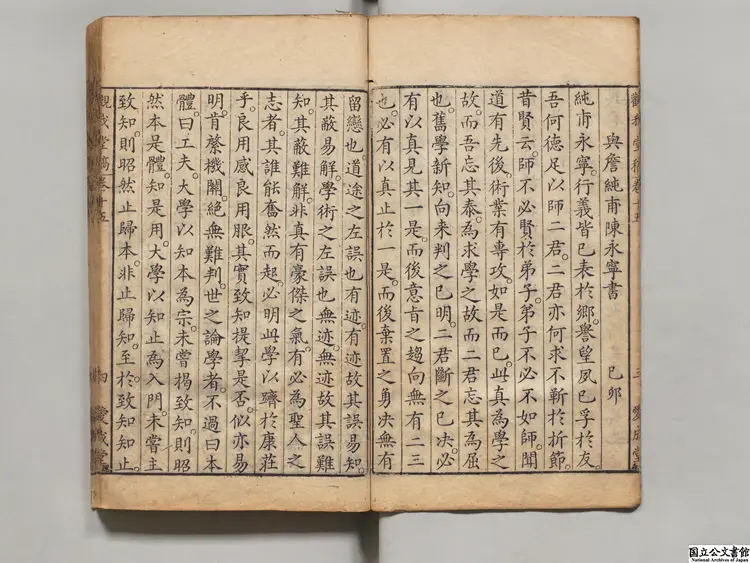 觀我堂稿卷十五
三
愛成堂
與詹純甫陳永寧書
己卯
純甫永寧。行義皆已表於鄉。譽望夙已孚於友。
吾何德足以師二君。二君亦何求不靳於折節。
昔賢云。師不必賢於弟子。弟子不必不如師。聞
道有先後。術業有專攻。如是而已。此真為學之
故。而吾忘其泰。為求學之故。而二君忘其為屈
也。舊學新知。向來判之已明。二君斷之已决。必
有以真見其一是。而後意旨之趨向無有二三
也。必有以真止於一是。而後棄置之勇决無有
留戀也。道途之左誤也有迹。有迹故其誤易知。
其蔽易解。學術之左誤也無迹。無迹故其誤難
知。其蔽難解。非真有豪傑之氣。有必為聖人之
志者。其誰能奮然而起。必明此學以躋於康莊
乎。良用感良用服。其實致知提挈是否。似亦易
明。肯綮機關。絕無難判。世之論學者。不過曰本
體。曰工夫。大學以知本為宗。未嘗揭致知。則昭
然本是體。知是用。大學以知止為入門。未嘗主
致知。則昭然止歸本。非止歸知。至於致知知止。
觀我堂稿卷十五
四
愛成堂
国立公文書館
National Archives of Japan